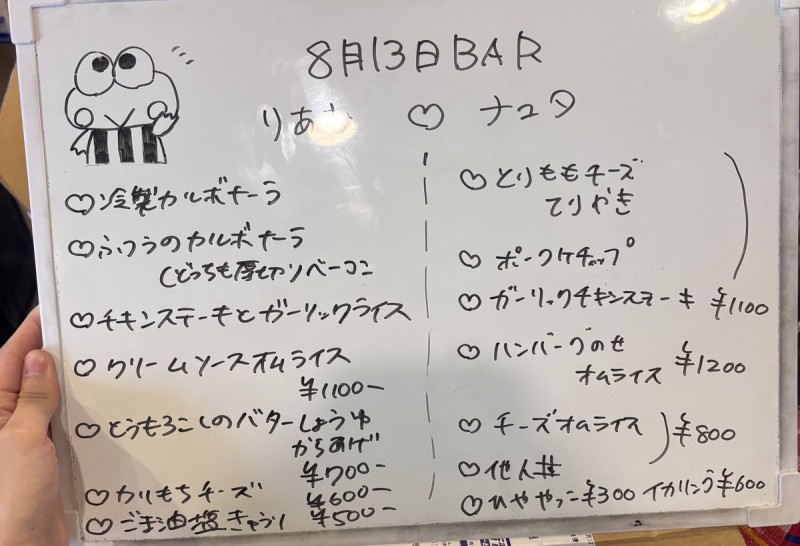 8月13日BAR
りあ ♡ ナユタ
♡冷製カルボナーラ
♡ふつうのカルボナーラ
(どっちも厚切りベーコン
♡チキンステーキとガーリックライス
♡クリームソースオムライス
¥1100-
♡とうもろこしのバターしょうゆ
からあげ
¥700-
♡カリもちチーズ ¥600-
♡ごま油塩きゅうり ¥500-
♡とりももチーズ
てりやき
♡ポークケチャップ
♡ガーリックチキンステーキ ¥1100
♡ハンバーグのせ
オムライス ¥1200
♡チーズオムライス
¥800
♡他人丼
♡ひややっこ¥300 イカリング¥600